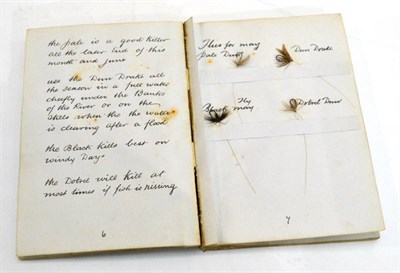 the pale is a good killer
all the later end of this
month and june
use the Dun Drake all
the season in a full water
chiefly under the Banks
of the River or on the
when the the water
is clearing after a flood
the Black kills best on
windy Days
the Dotrel will kill at
most times if fish is rissing
6
Flies for may
Pale Dun
Dun Drake
Black Fly
may
Dotrel Dun
7